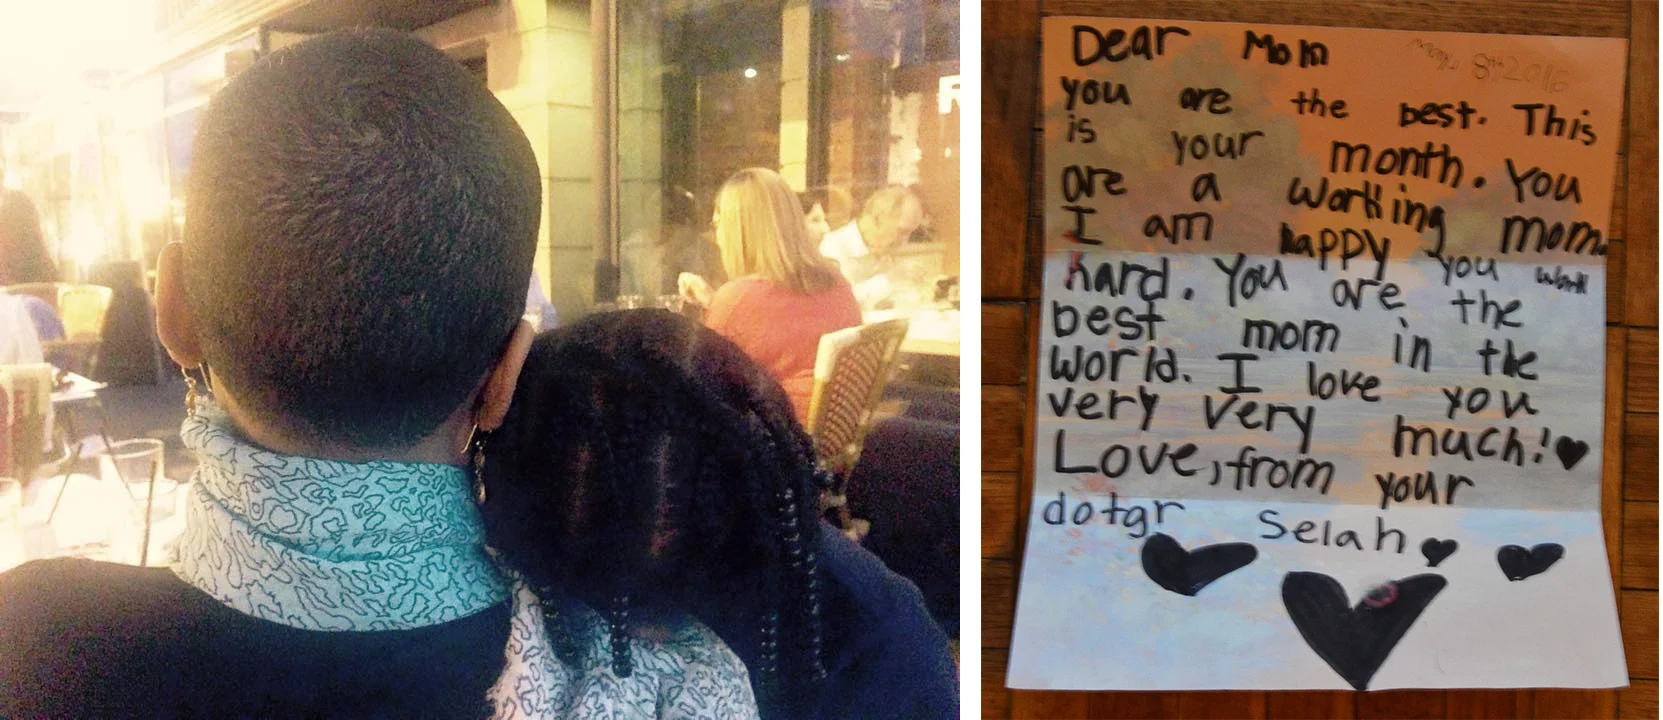 R
Dear Mom
May 8th 2016
you are the best. This
is your month. You
are a working mom.
I am happy you work
hard. You are the
best mom in the
world. I love you
very very much!
Love, from your
dotgr Selah